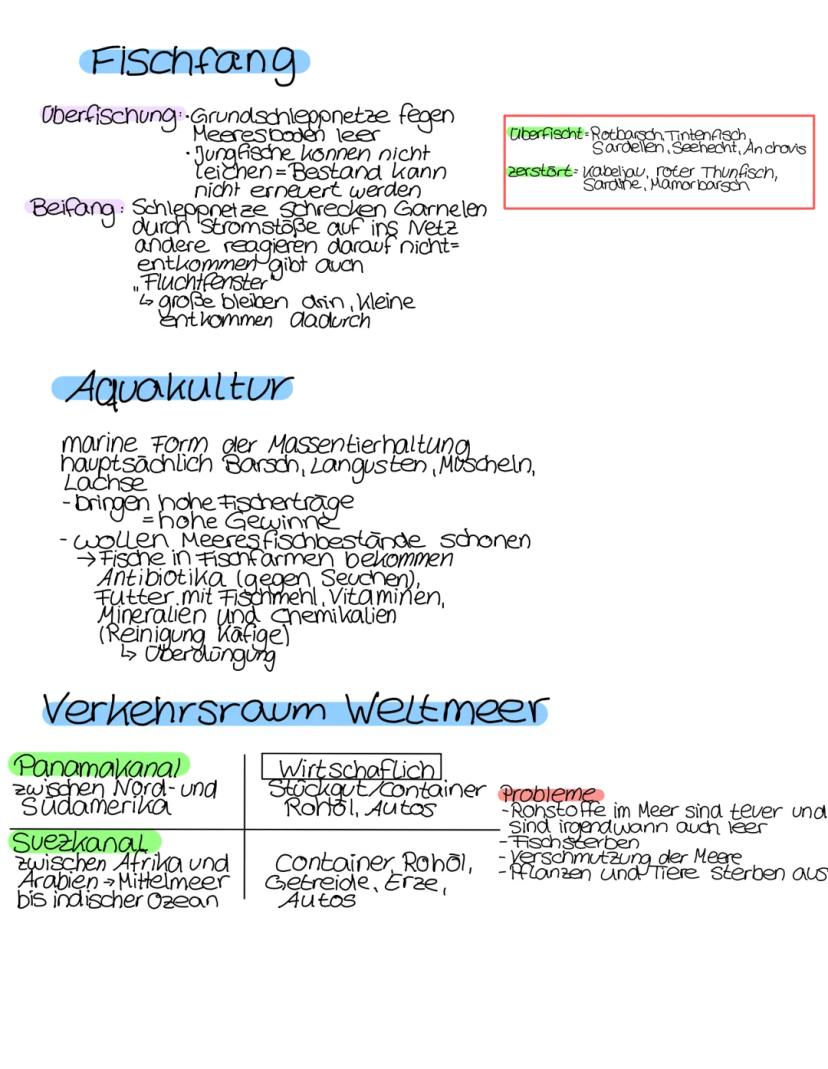 Fischfang
Überfischung: · Grundschleppnetze fegen
Meeresboden leer
· Jungfische können nicht
leichen = Bestand kann
nicht erneuert werden
Beifang: Schleppnetze schrecken Garnelen
durch Stromstöße auf ins Netz
andere reagieren darauf nicht=
entkommen gibt auch
„Fluchtfenster"
↳ große bleiben drin, kleine
entkommen dadurch
Überfischt= Rotbarsch, Tintenfisch,
Sardellen, Seehecht, Anchovis
zerstört= Kabeljau, roter Thunfisch,
Sardine, Mamorbarsch
Aquakultur
marine Form der Massentierhaltung
hauptsächlich Barsch, Langusten, Muscheln,
Lachse
- bringen hohe Fischerträge
= hohe Gewinne
- wollen Meeresfischbestände schonen
→ Fische in Fischfarmen bekommen
Antibiotika (gegen Seuchen),
Futter mit Fischmehl, Vitaminen,
Mineralien und Chemikalien
(Reinigung Käfige)
↳ Überdüngung
Verkehrsraum Weltmeer
Panamakanal
zwischen Nord- und
Südamerika
Wirtschaflich
Stückgut/Container
Rohöl, Autos
Suezkanal
zwischen Afrika und
Arabien → Mittelmeer
bis indischer Ozean
Container, Rohöl,
Getreide, Erze,
Autos
Probleme
- Rohstoffe im Meer sind teuer und
sind irgendwann auch leer
- Fischsterben
- Verschmutzung der Meere
- Pflanzen und Tiere sterben aus